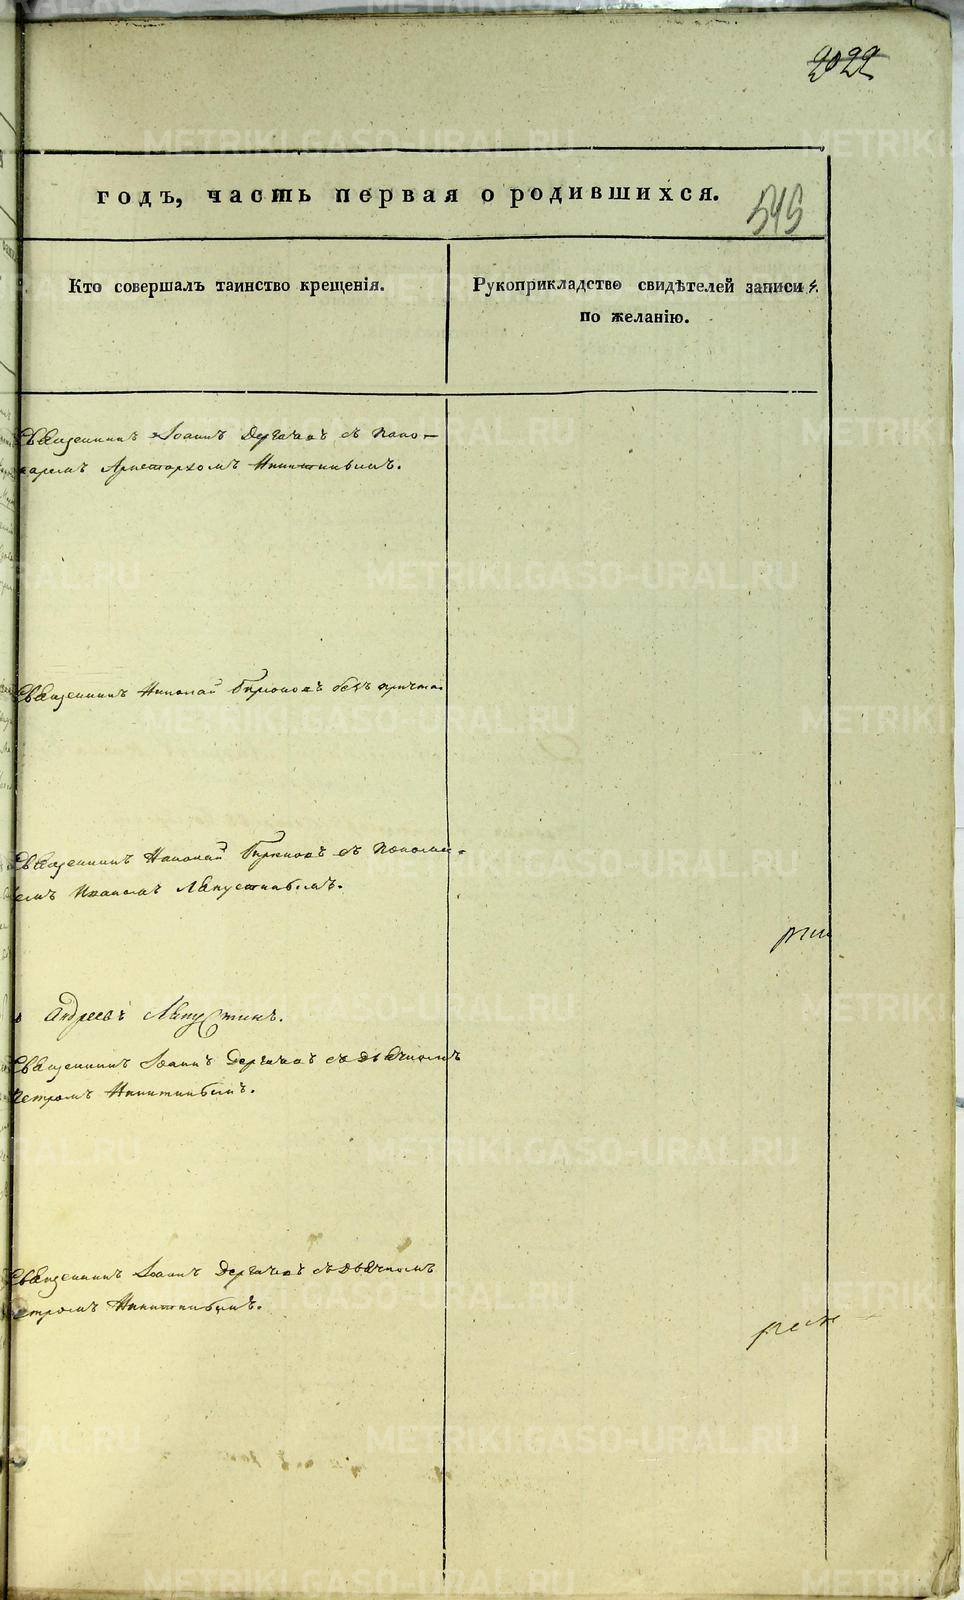 2022
годъ, часть первая о родившихся.
545
Кто совершалъ таинство крещенія.
Рукоприкладство свидѣтелей записи
по желанію.
Священникъ Іоаннъ Дергачевъ съ Поно-
маремъ Аристархомъ Никитинымъ.
Священникъ Николай Бирюковъ безъ причта
Священникъ Николай Бирюковъ съ
Иваномъ Лапустинымъ.
Андреевъ Лапустинъ.
Священникъ Іоаннъ Дергачевъ съ дьячкомъ
Петромъ Никитинымъ.
Священникъ Іоаннъ Дергачевъ съ дьячкомъ
Петромъ Никитинымъ.
METRIKI.GASO-URAL.RU